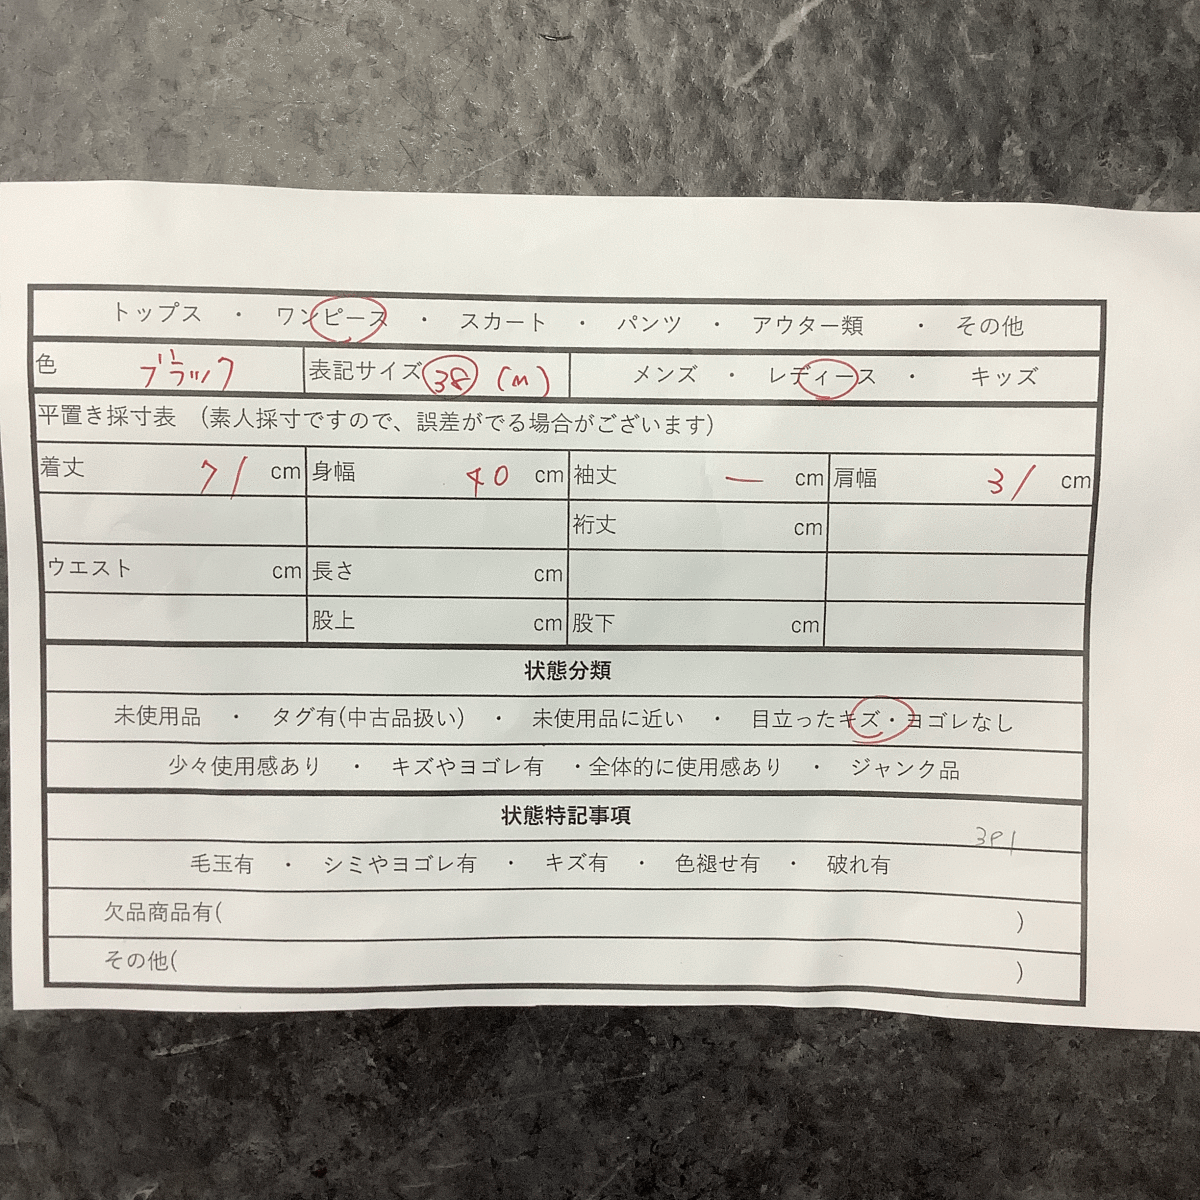 トップス ・ ワンピース ・ スカート ・ パンツ ・ アウター類 ・ その他
色 ブラック 表記サイズ 38 (M) メンズ ・ レディース ・ キッズ
平置き採寸表 (素人採寸ですので、誤差がでる場合がございます)
着丈 71 cm 身幅 40 cm 袖丈 ー cm 肩幅 31 cm
裄丈 cm
ウエスト cm 長さ cm
股上 cm 股下 cm
状態分類
未使用品 ・ タグ有(中古品扱い) ・ 未使用品に近い ・ 目立ったキズ・ヨゴレなし
少々使用感あり ・ キズやヨゴレ有 ・全体的に使用感あり ・ ジャンク品
状態特記事項
毛玉有 ・ シミやヨゴレ有 ・ キズ有 ・ 色褪せ有 ・ 破れ有
欠品商品有( )
その他( )